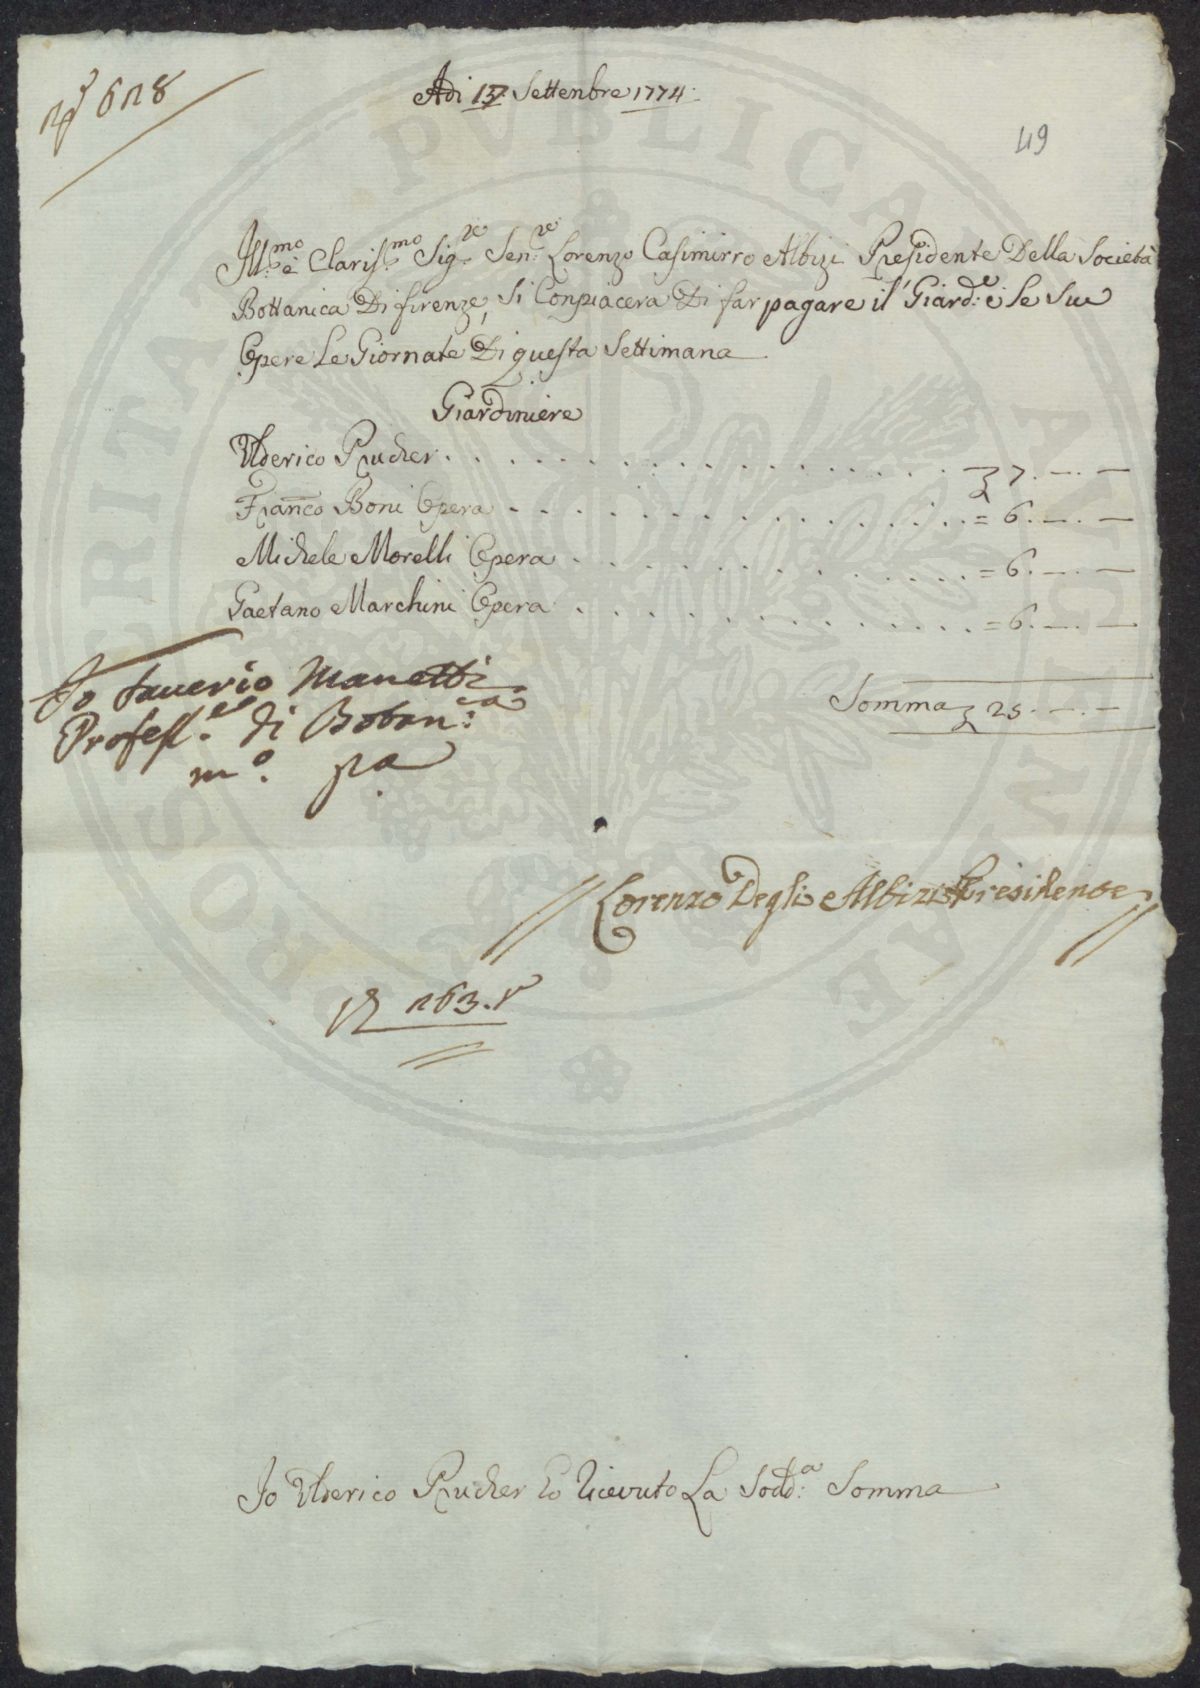 628
Adi 17 Settenbre 1774
49
Ill.mo e Claris.mo Sig.re Sen.re Lorenzo Casimirro Albizi Presidente Della Società
Bottanica Di firenze, Si Conpiacera Di far pagare il Giard.e e le Sue
Opere Le Giornate Di questa Settimana
Giardiniere
Ulderico Prucher . . . . . . . . . . . . . . . . . 7. —. —
Fran.co Boni Opera . . . . . . . . . . . . . . . = 6. —. —
Michele Morelli Opera . . . . . . . . . . . . . = 6. —. —
Gaetano Marchini Opera . . . . . . . . . . . . . = 6. —. —
Somma 25. —. —
Io Saverio Manetti
Profess.re di Botan.ca
m.o pa
// Lorenzo Degli Albizi Presidente //
263.
Io Ulderico Prucher ho Ricevuto La Sodd.a Somma
PUBLICAE
PROSPERITATI